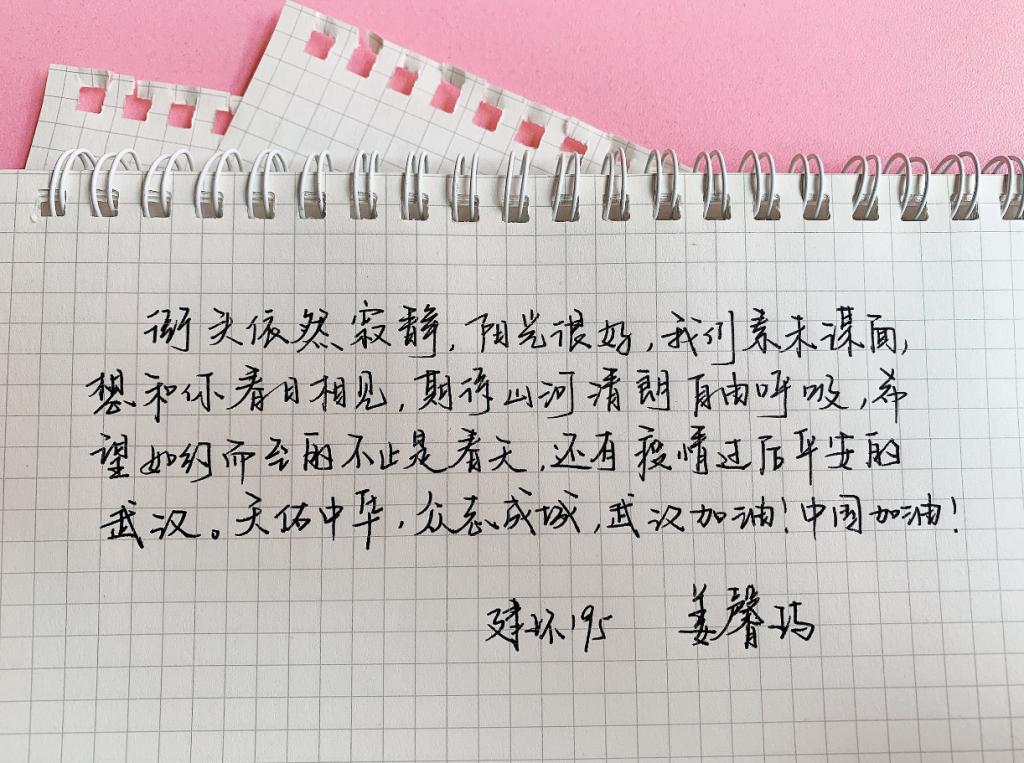 街头依然寂静,阳光很好,我们素未谋面,
想和你春日相见,期待山河清朗自由呼吸,希
望如约而至的不止是春天,还有疫情过后平安的
武汉。天佑中华,众志成城,武汉加油!中国加油!
建环195 姜馨玙